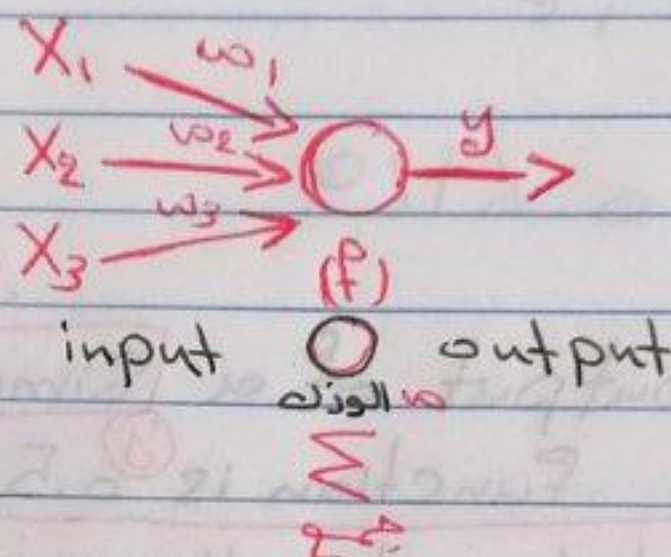 X₁ w₁
X₂ w₂ y
X₃ w₃
(f)
input output
الوزن w
Σ